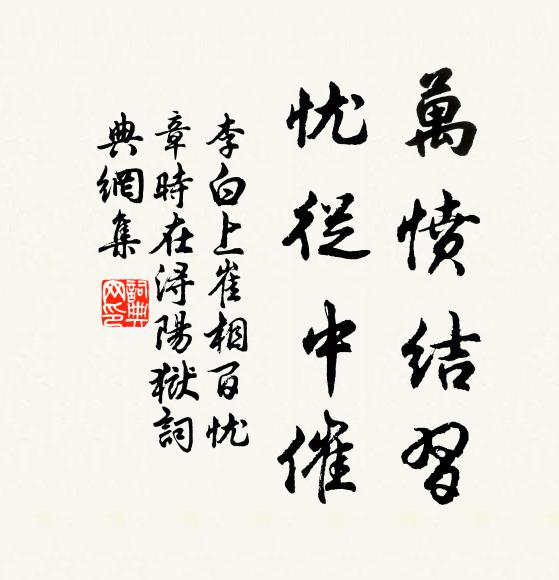 萬憤結習
忧從中催
李白上崔相百忧
章時在浔陽獄詞
典網集
詞典
网印